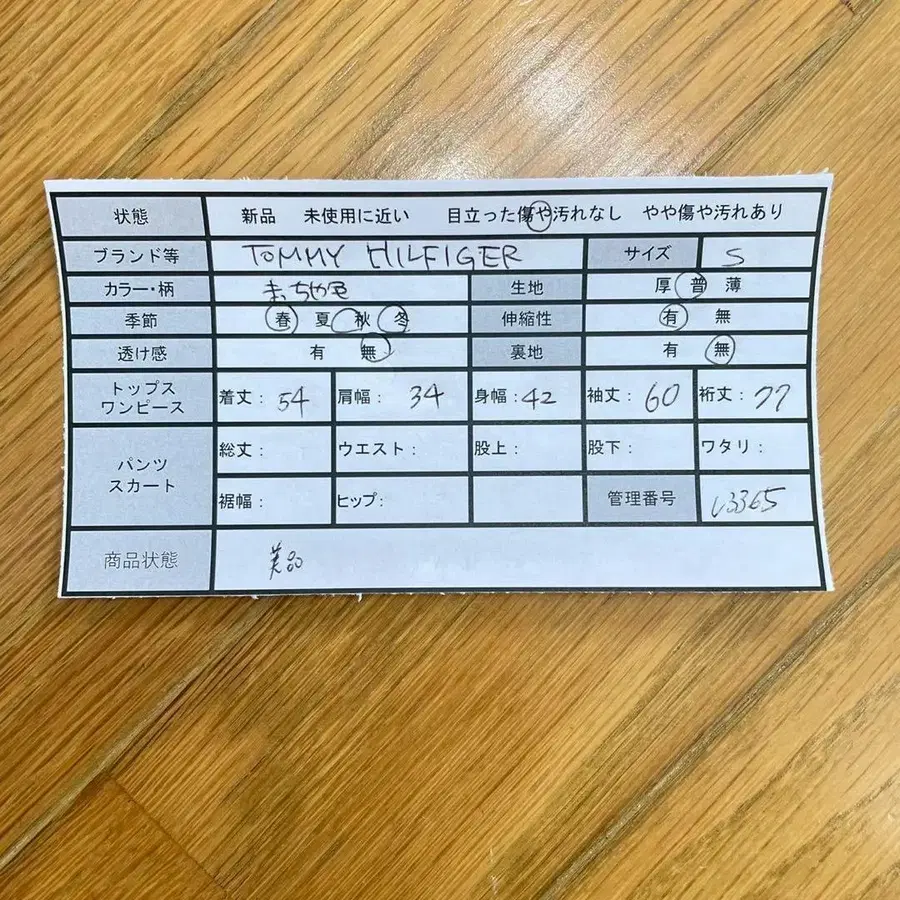 状態 新品 未使用に近い 目立った傷や汚れなし やや傷や汚れあり
ブランド等 TOMMY HILFIGER サイズ S
カラー・柄 ちゃ色 生地 厚 普 薄
季節 春 夏 秋 冬 伸縮性 有 無
透け感 有 無 裏地 有 無
トップス ワンピース 着丈: 54 肩幅: 34 身幅: 42 袖丈: 60 裄丈: 77
パンツ スカート 総丈: ウエスト: 股上: 股下: ワタリ:
裾幅: ヒップ: 管理番号 3365
商品状態 美品